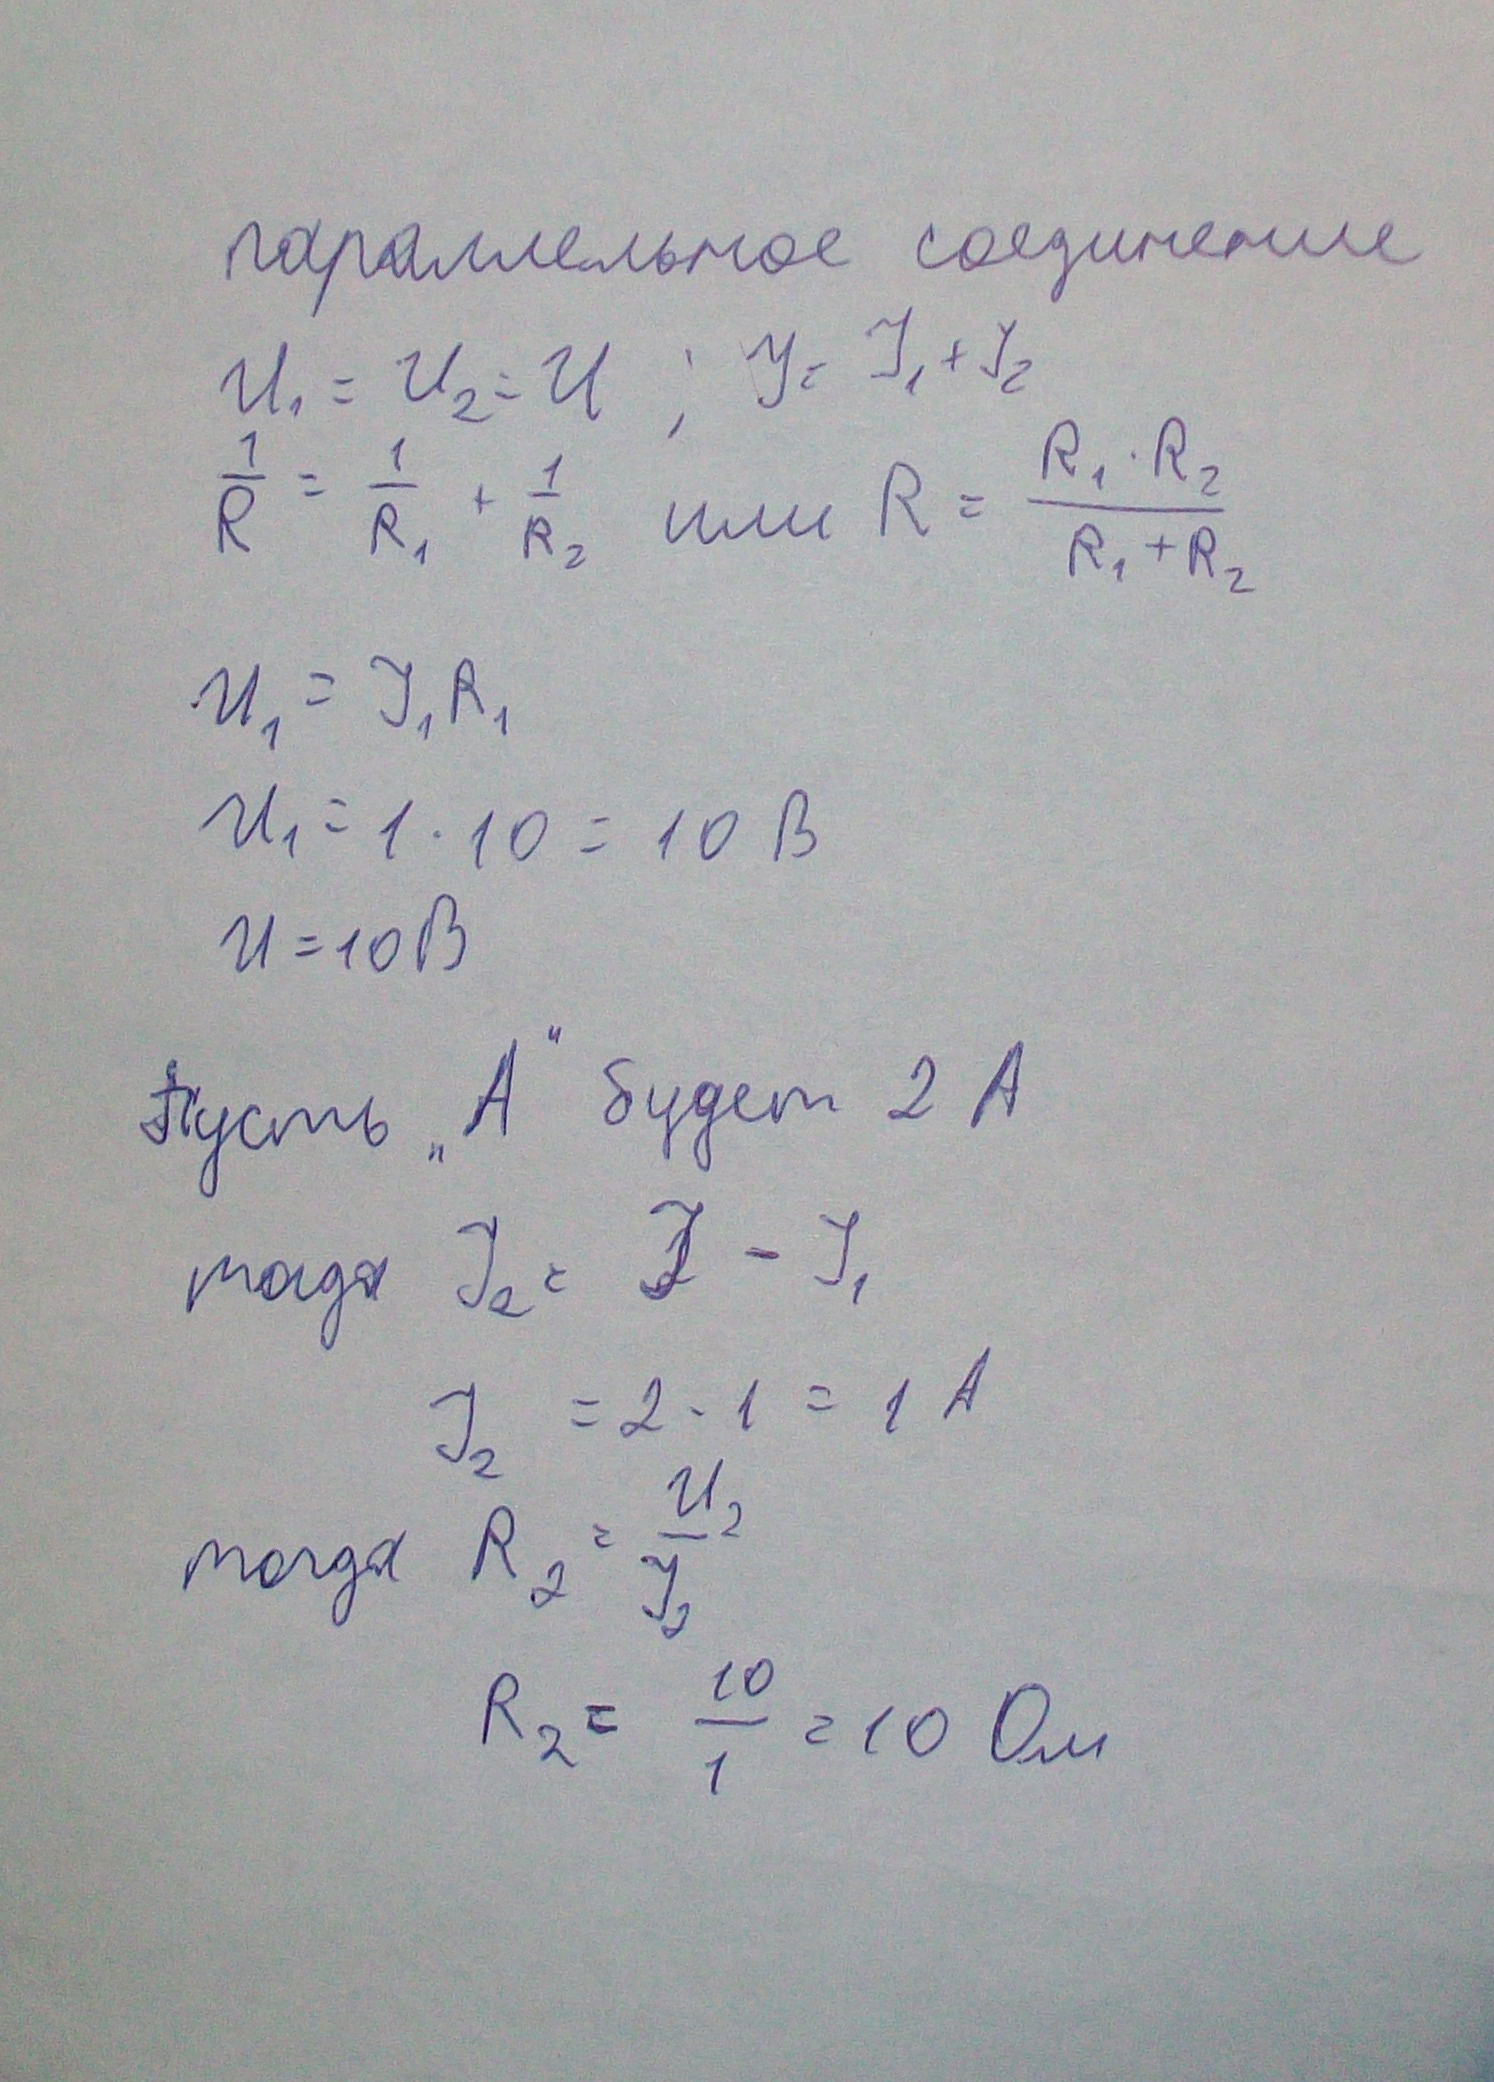 параллельное соединение
U₁ = U₂ = U ; J = J₁ + J₂
1/R = 1/R₁ + 1/R₂ или R = R₁ · R₂ / R₁ + R₂
U₁ = J₁R₁
U₁ = 1 · 10 = 10 В
U = 10 В
Пусть „А" будет 2 А
тогда J₂ = J - J₁
J₂ = 2 - 1 = 1 А
тогда R₂ = U₂/J₂
R₂ = 10/1 = 10 Ом